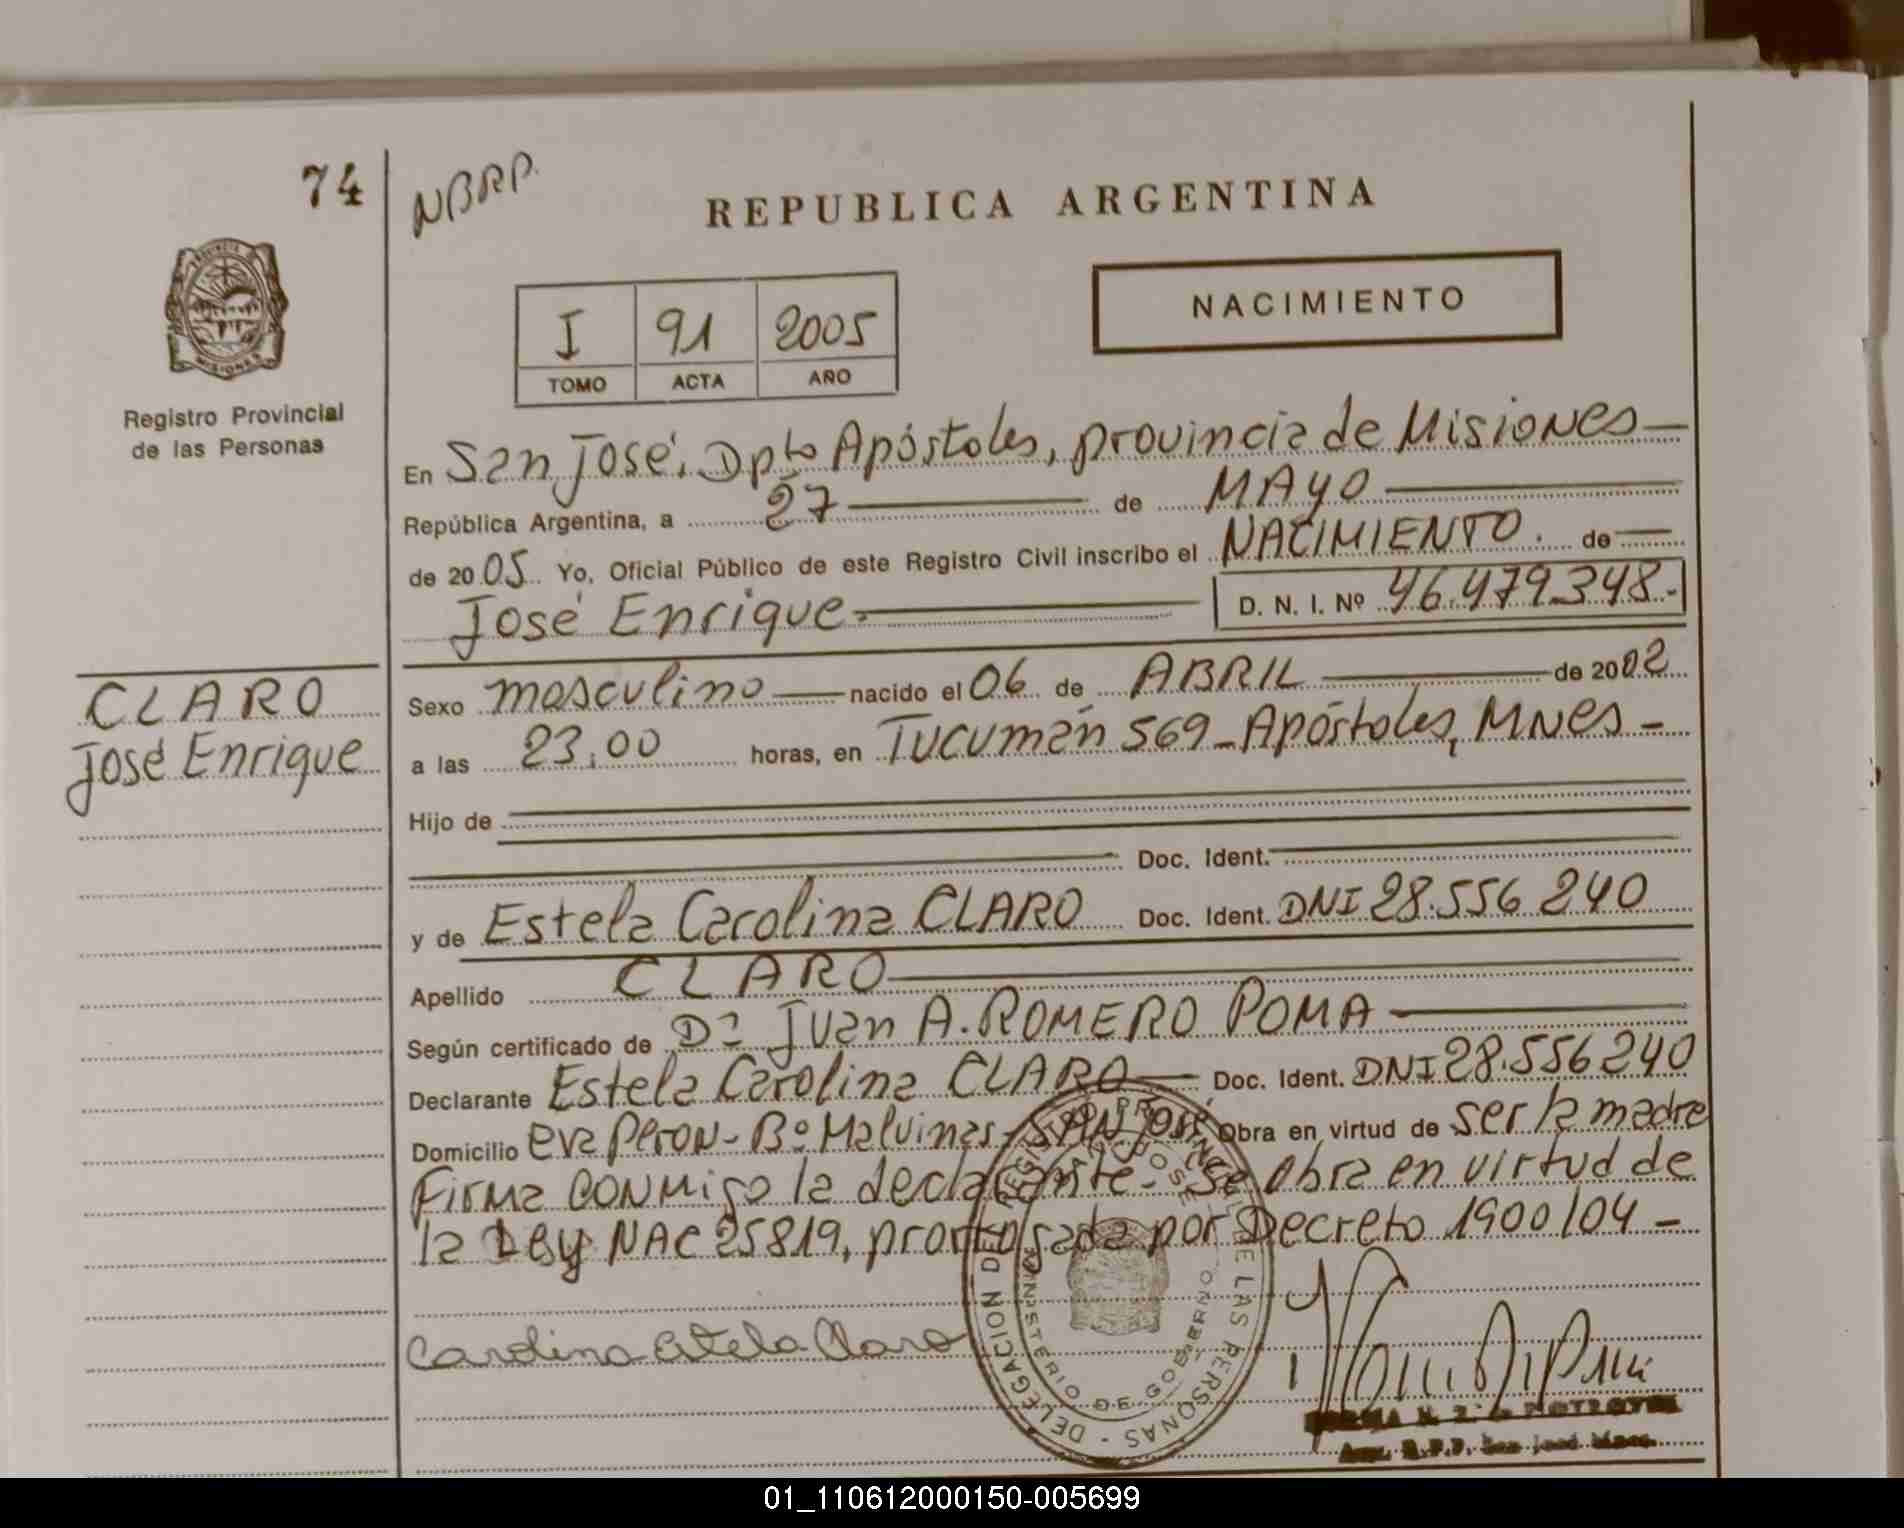 74
NBRP.
REPUBLICA ARGENTINA
PROVINCIA
MISIONES
Registro Provincial
de las Personas
I 91 2005
TOMO ACTA AÑO
NACIMIENTO
En San José, Dpto Apóstoles, provincia de Misiones
República Argentina, a 27 de MAYO
de 2005 Yo, Oficial Público de este Registro Civil inscribo el NACIMIENTO. de
José Enrique D. N. I. Nº 46.479.348.-
CLARO
José Enrique
Sexo masculino nacido el 06 de ABRIL de 2002
a las 23,00 horas, en Tucumán 569 - Apóstoles, MNES -
Hijo de
Doc. Ident.
y de Estela Carolina CLARO Doc. Ident. DNI 28.556 240
Apellido CLARO
Según certificado de Dr Juan A. ROMERO POMA
Declarante Estela Carolina CLARO Doc. Ident. DNI 28.556 240
Domicilio Eva Peron - Bº Malvinas - SAN José Obra en virtud de ser la madre
Firma CONMigo la declarante. Se obra en virtud de
la Ley NAC 25819, prorrogada por Decreto 1900/04 -
Carolina Estela Claro
DELEGACION DEL REGISTRO PROVINCIAL DE LAS PERSONAS
SAN JOSE
MINISTERIO DE GOBIERNO
01_110612000150-005699